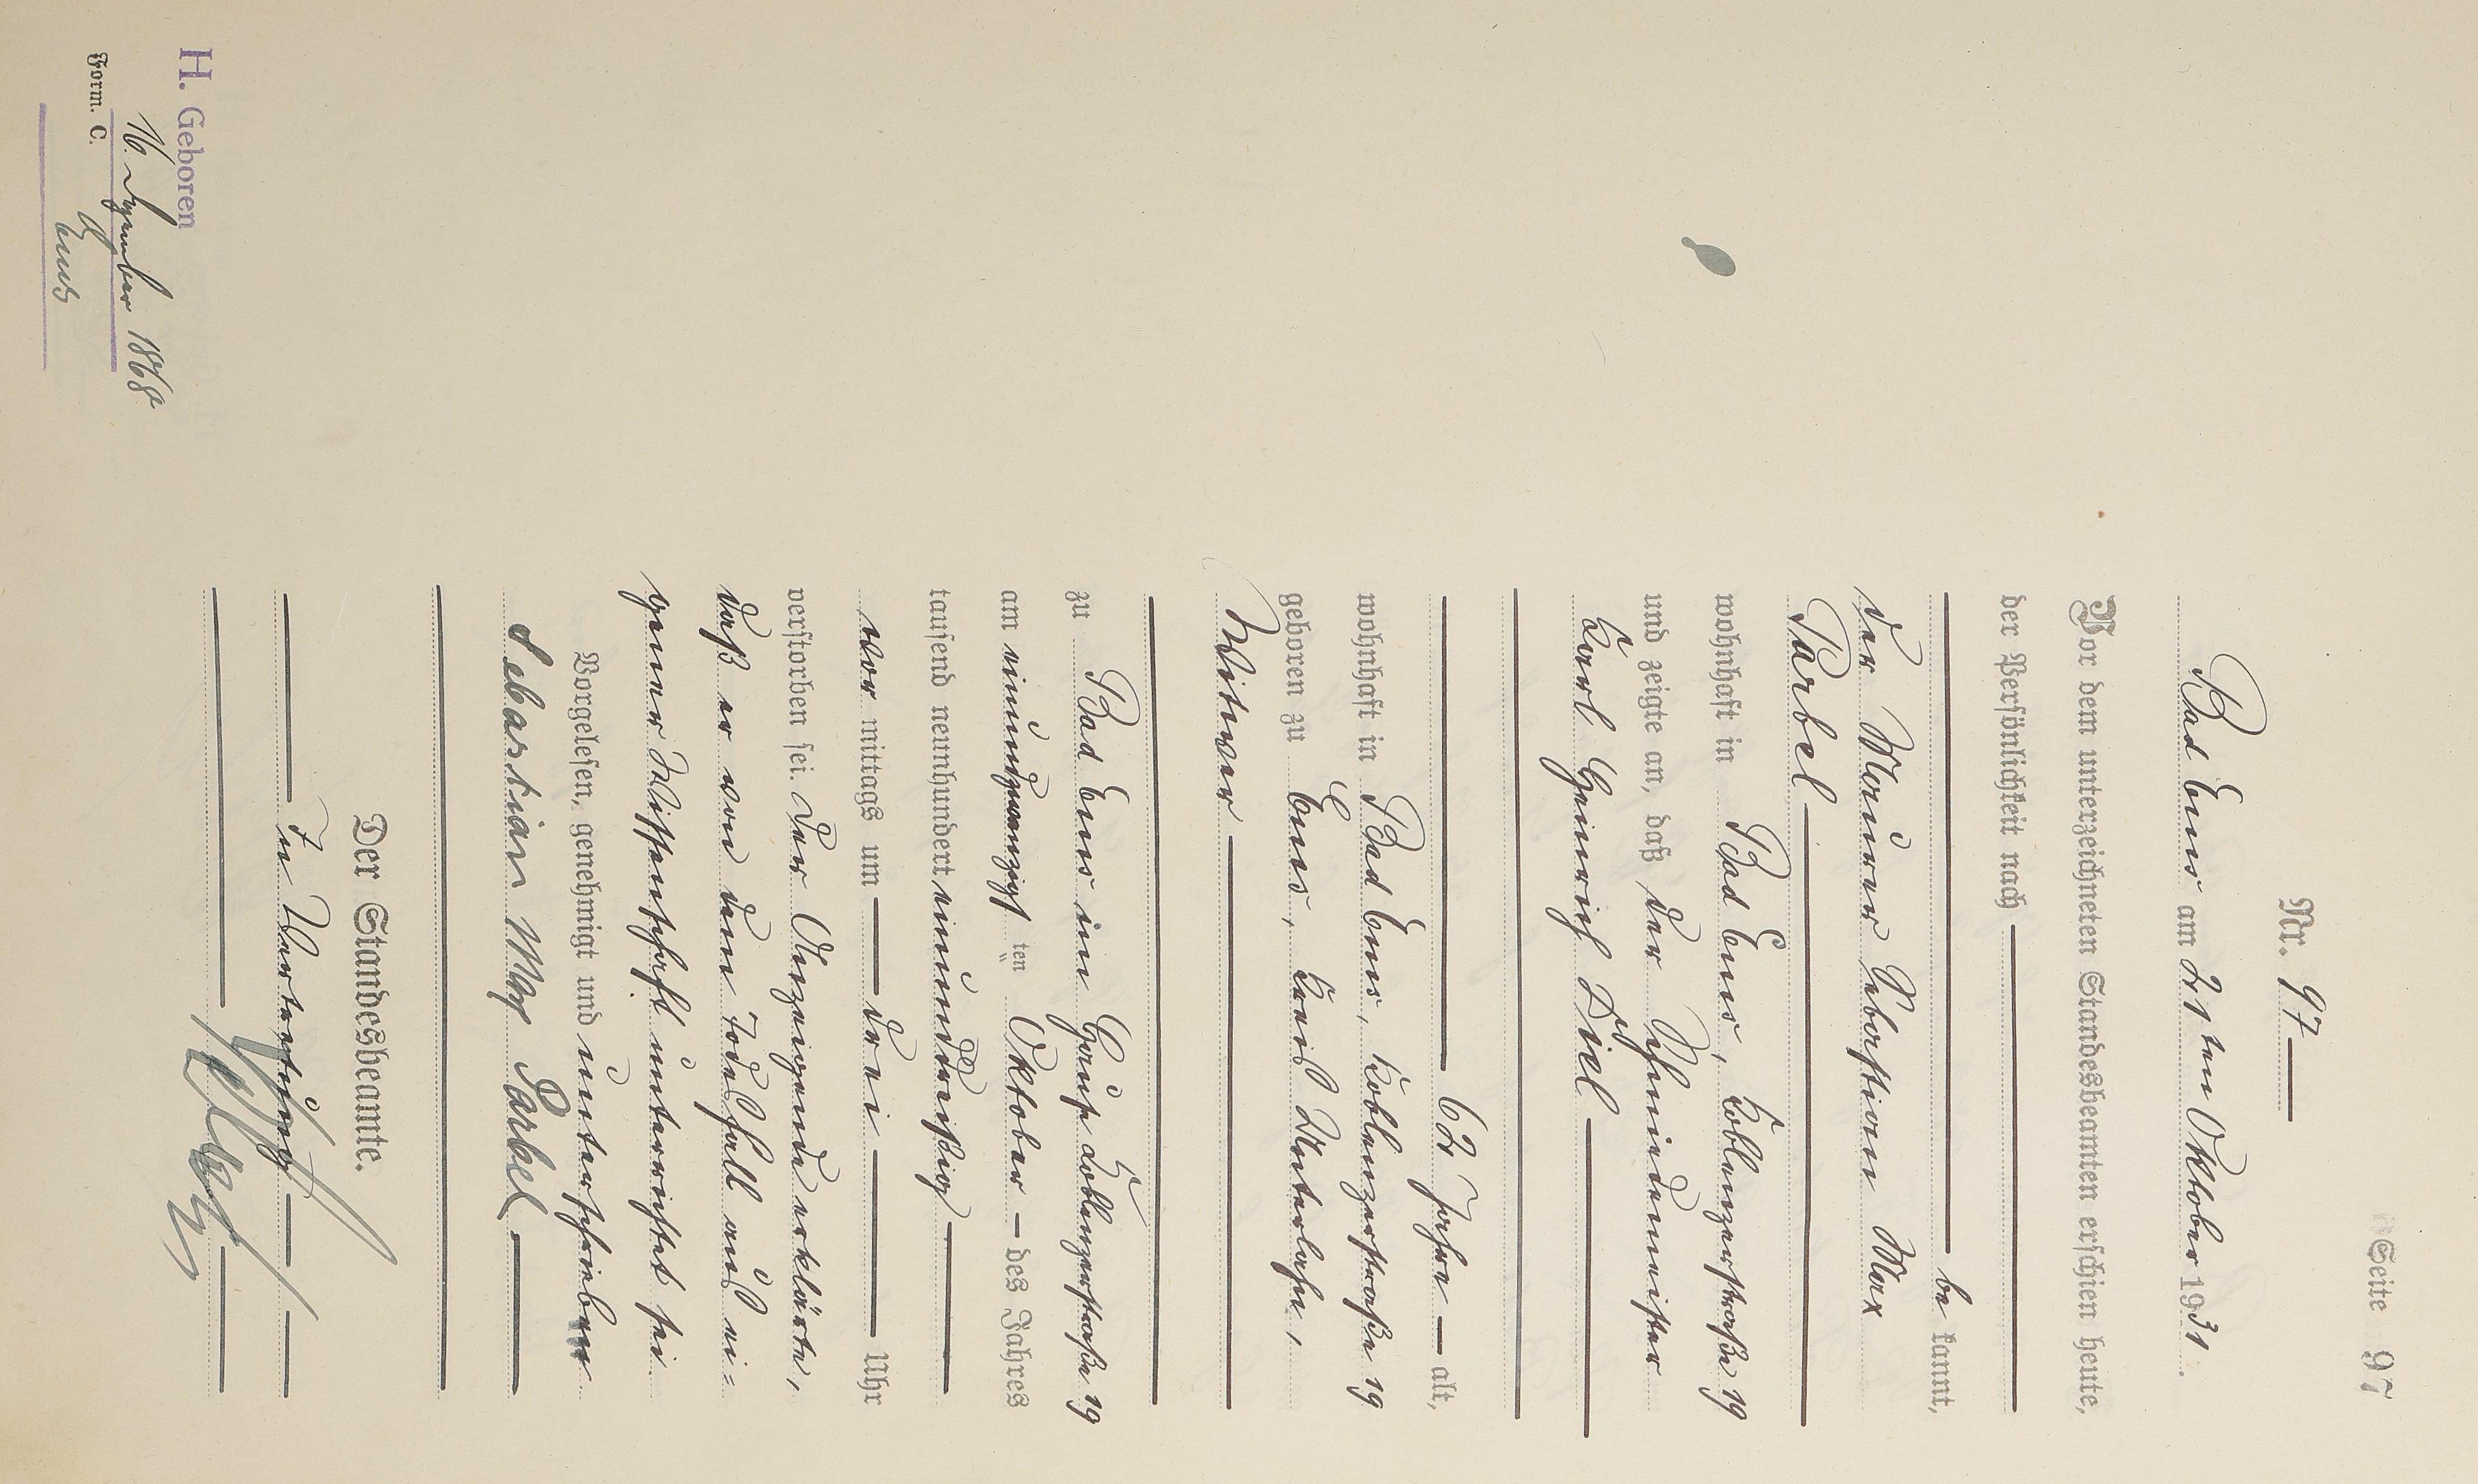 Seite 97
Nr. 97
Bad Ems am 21ten Oktober 1931.
Vor dem unterzeichneten Standesbeamten erschien heute,
der Persönlichkeit nach
be kannt,
der Maurer Sebastian Max
Sarbel
wohnhaft in Bad Ems, Koblenzerstraße 19
und zeigte an, daß der Schneidermeister
Karl Heinrich Diel
62 Jahre alt,
wohnhaft in Bad Ems, Koblenzerstraße 19
geboren zu Ems, Kreis Unterlahn,
Witwer
zu Bad Ems im Hause Koblenzerstraße 19
am einundzwanzigsten Oktober des Jahres
tausend neunhundert einunddreißig
vor mittags um drei Uhr
verstorben sei. Der Anzeigende erklärte,
daß er von dem Todesfall aus ei=
gener Wissenschaft unterrichtet sei.
Vorgelesen, genehmigt und unterschrieben
Sebastian Max Sarbel
Der Standesbeamte.
In Vertretung
H. Geboren
16. 1868
Ems
Form. C.